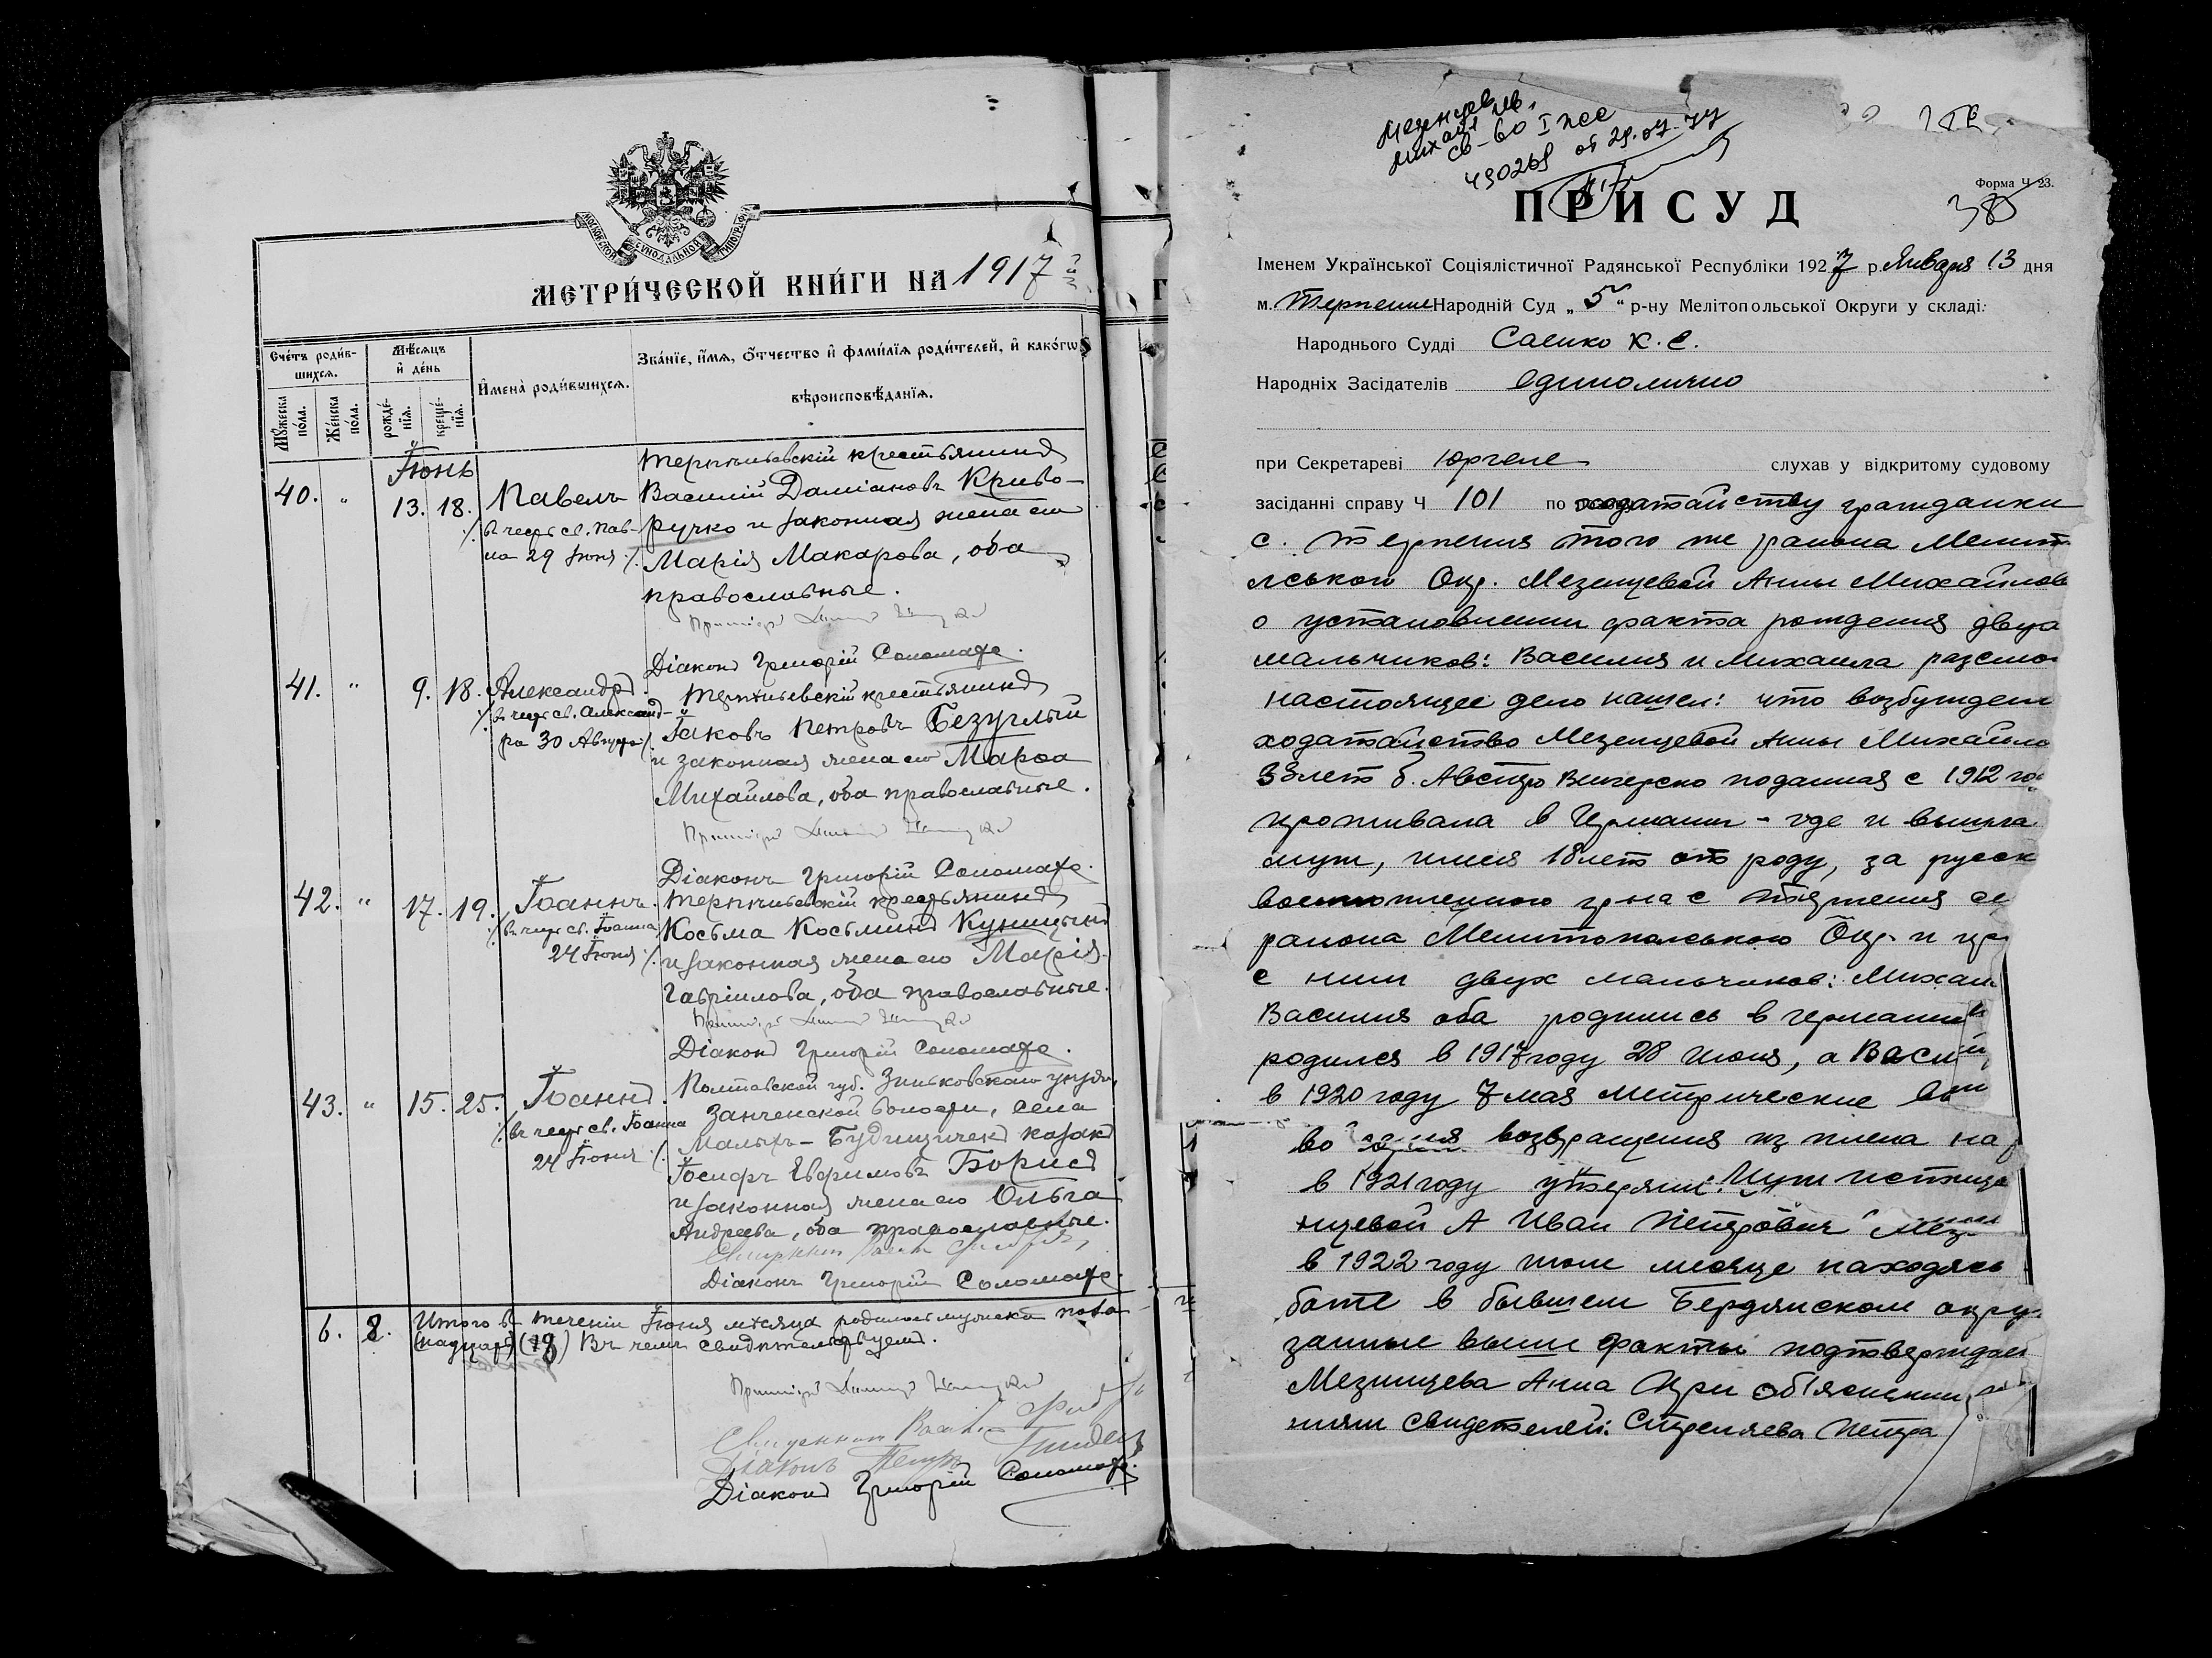 МОСКОВСКОЙ СѴНОДАЛЬНОЙ ТИПОГРАФІИ
МЕТРИ́ЧЕСКОЙ КНИ́ГИ НА 1917
Сче́тъ роди́в-
шихсѧ.
Мꙋ́жеска по́ла.
Же́нска по́ла.
Мѣ́сѧцъ и҆ де́нь
рожде́-
нїѧ.
креще́-
нїѧ.
И҆мена̀ роди́вшихсѧ.
Зва́нїе, и҆́мѧ, ѻ҆́тчество и҆ фами́лїѧ роди́телей, и҆ како́гѡ
вѣроисповѣ́данїѧ.
Іюнь
40. " 13. 18. Павелъ
въ честь св. Пав-
ла 29 Іюня
Терпѣньевскій крестьянинъ
Василій Даміановъ Криво-
ручко и законная жена его
Марія Макарова, оба
православные.
Діаконъ Григорій Соломаха.
41. " 9. 18. Александръ.
въ честь св. Александ-
ра 30 Августа
Терпѣньевскій крестьянинъ
Іаковъ Петровъ Безуглый
и законная жена его Марѳа
Михайлова, оба православные.
Діаконъ Григорій Соломаха.
42. " 17. 19. Іоаннъ.
въ честь св. Іоанна
24 Іюня
Терпѣньевскій крестьянинъ
Косьма Косьминъ Куницынъ
и законная жена его Марія
Гавріилова, оба православные.
Діаконъ Григорій Соломаха.
43. " 15. 25. Іоаннъ.
въ честь св. Іоанна
24 Іюня
Полтавской губ. Зиньковскаго уѣзда,
волости, села
Малыхъ-Будищичекъ казакъ
Іосифъ Евфимовъ Борисъ
и законная жена его Ольга
Андреева, оба православные.
Діаконъ Григорій Соломаха.
6. 8. Итого въ теченіи Іюня мѣсяца родилось мужеска пола
Въ чемъ свидѣтельствуемъ.
Діаконъ Петръ
Діаконъ Григорій Соломаха.
Мезенцев
Михаил Ив.
св-во I жс
490269 от 29.07.77
Форма Ч 23.
38
ПРИСУД
Іменем Української Соціялістичної Радянської Республіки 1927 р. Января 13 дня
м. Терпение Народній Суд „5“ р-ну Мелітопольської Округи у складі:
Народнього Судді Саенко К. С.
Народніх Засідателів единолично
при Секретареві Юргеле слухав у відкритому судовому
засіданні справу Ч 101 по ходатайству гражданки
с. Терпения того же района Мелит
льского Окр. Мезенцевой Анны Михайлов
о установлении факта рождения двух
мальчиков: Василия и Михаила разсмо
настоящее дело нашел: что возбужден
ходатайство Мезенцевой Анны Михайло
33 лет б. Австро Венгерско поданная с 1912 го
проживала в Германии - где и вышла
муж, имея 18 лет от роду, за русск
военнопленного гр-на с Терпения се
района Мелитопольского Окр. и пр
с ним двух мальчиков: Михаи
Василия оба родились в Германии
родился в 1917 году 28 июня, а Васи
в 1920 году 7 мая Метрические
во время возвращения из плена на
в 1921 году утеряни. Муж истица
нцевой А Иван Петрович Мез
в 1922 году июле месяце находясь
боте в бывшем Бердянском окру
занные выше факты подтверждает
Мезинцева Анна При об'яснении
ниям свидетелей: Стреляева Петра